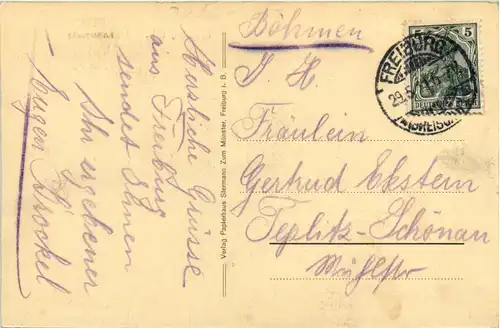 Herzliche Grüsse
aus Freiburg
sendet Ihnen
Ihr ergebener
Eugen
Verlag Papierhaus Zum Münster, Freiburg i. B.
Böhmen
5 5
FREIBURG
DEUTSCHES REICH
(BREISGAU)
Fräulein
Gertrud Ekstein
Teplitz-Schönau